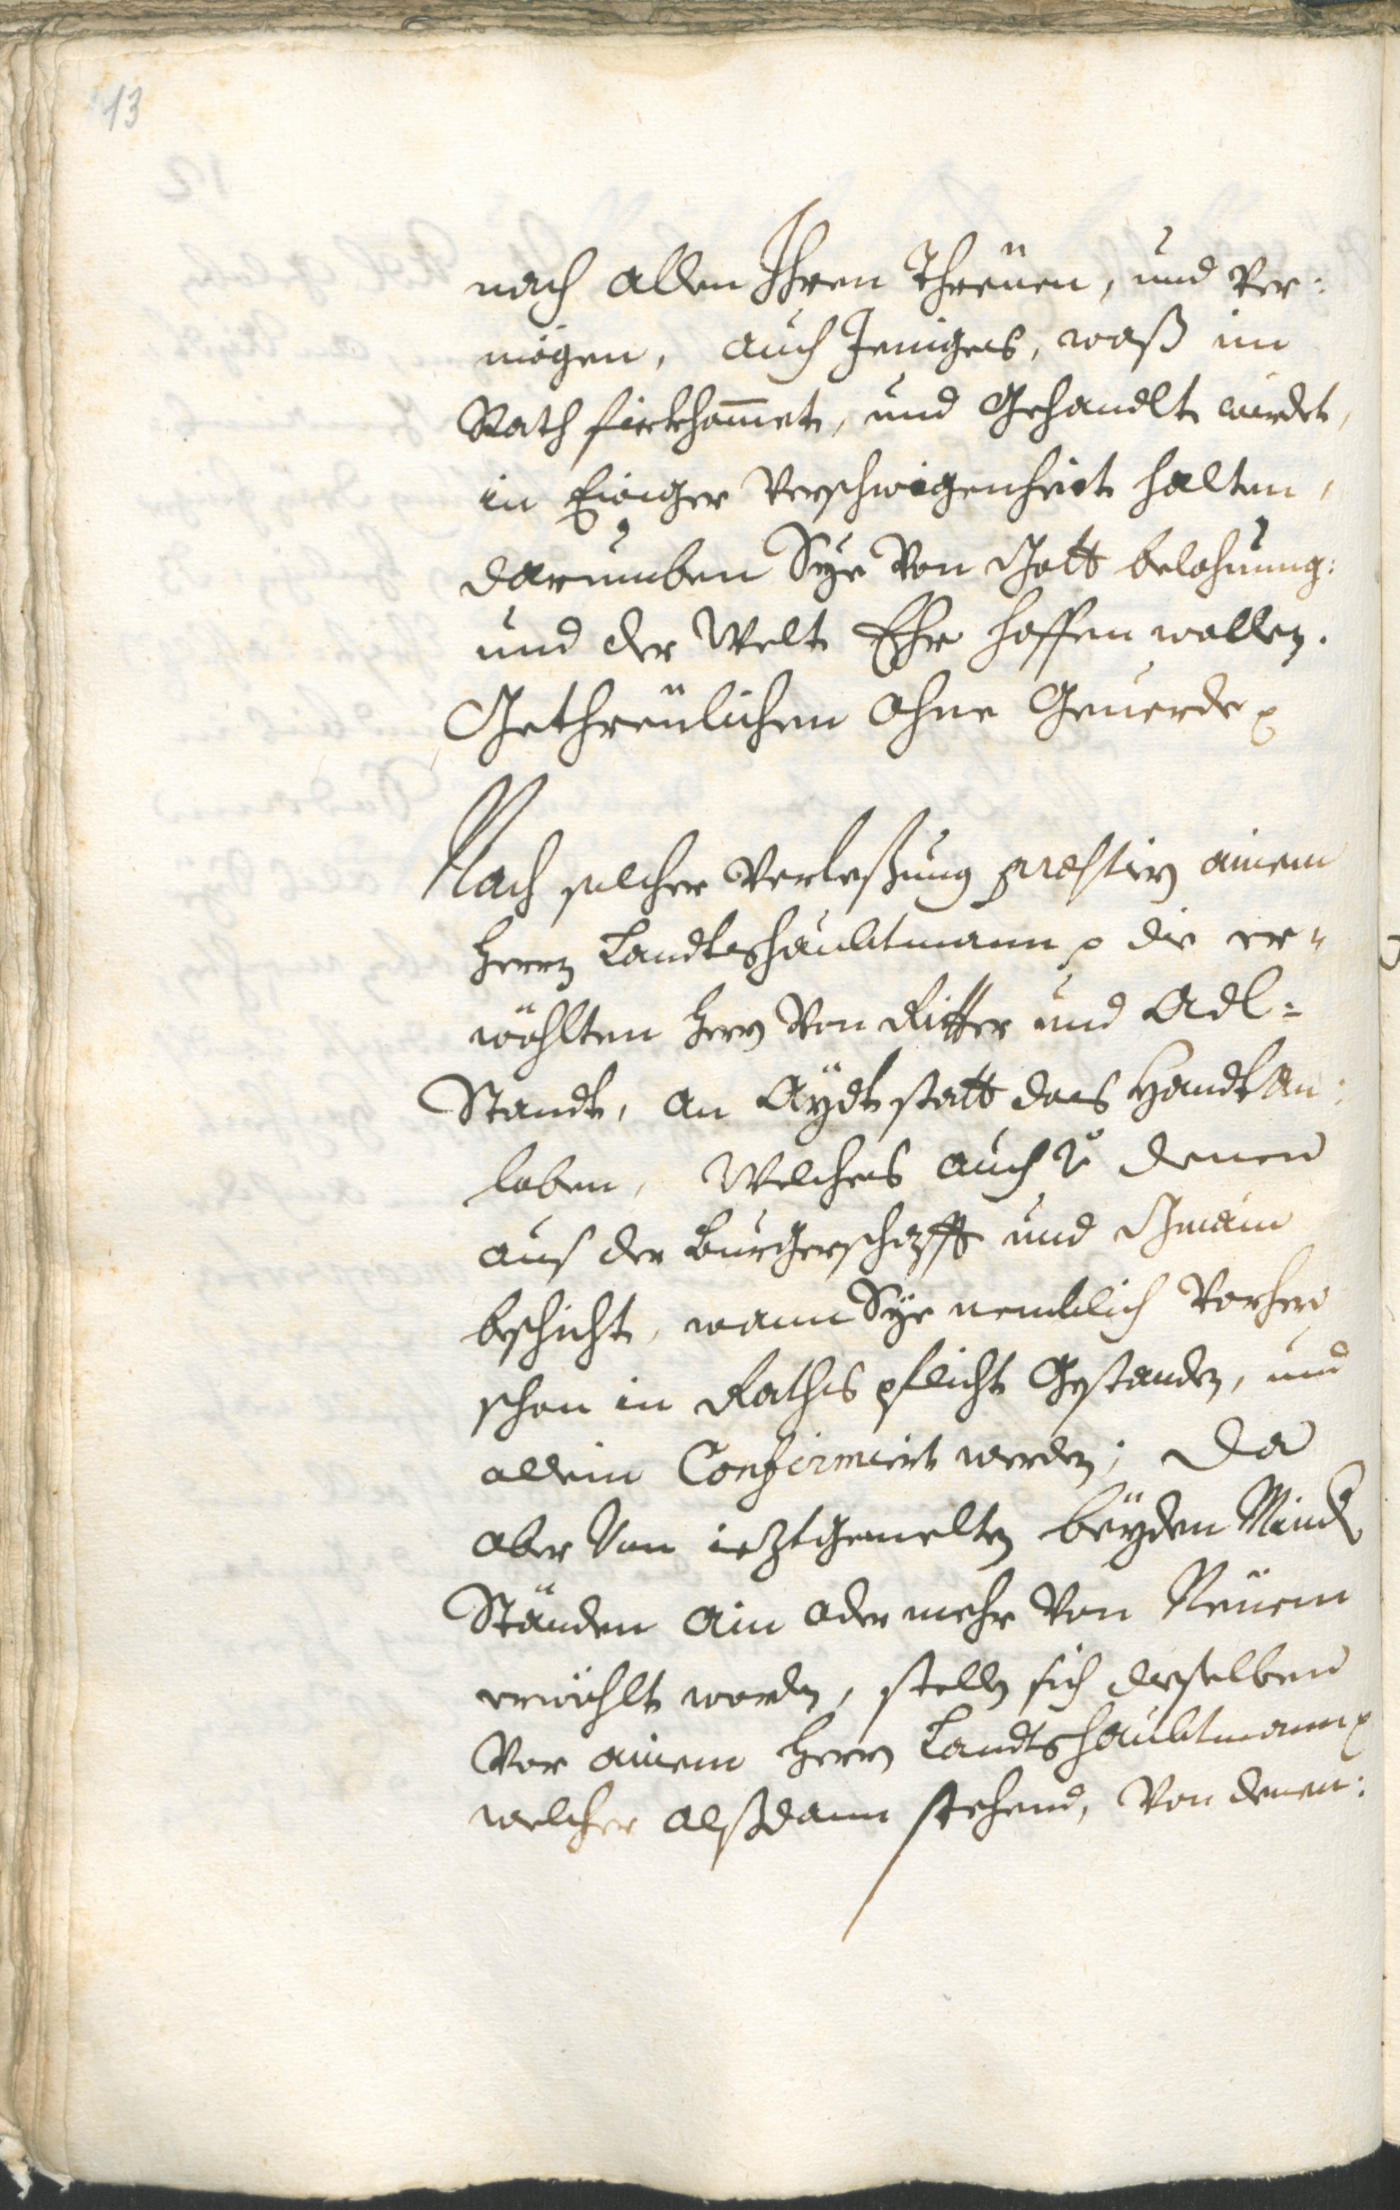 13
nach allen Ihren Threüen, und Ver:
mögen, auch Jeniges, waß im
Rath fürkhommet, und Gehandlt würdet,
in Ewiger Verschwigenheit halten,
darumben Sye Von Gott belohnung:
und der Welt Ehr hoffen wollen.
Gethreülichen ohne Geuerde
Nach solcher Verlesßung praestirn ainem
Herrn Landtshaubtmann die er„
wöhlten Herrn Von Ritter und Adl=
Standt, an Aydt statt das Handtan:
loben, Welches auch denen
aus der Burgerschafft und Gmain
beschicht, wann Sye nemblich Vorhero
schon in Raths pflicht Gestanden, und
allein Confirmiert werden; Da
aber Von ieztgemelten beyden
Ständen ain oder mehr Von Neüem
erwöhlt worden, stellen sich dieselben
Vor ainem Herrn Landtshaubtmann
welcher alßdann stehend, Von denen: